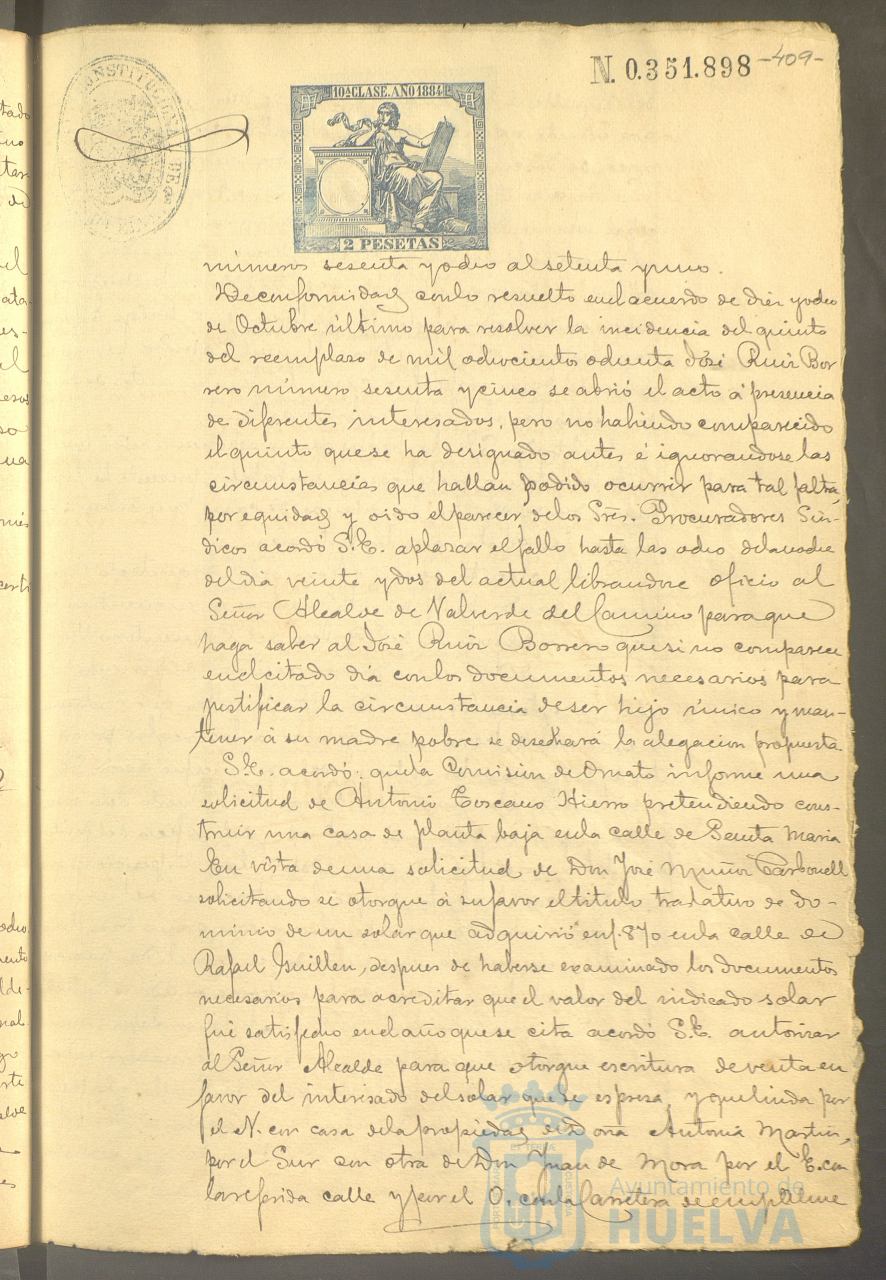 N. 0.351.898
-409-
CONSTITUCIONAL DE
10ª CLASE. AÑO 1884
2 PESETAS
números sesenta y ocho al setenta y uno.
De conformidad con lo resuelto en el acuerdo de diez y ocho
de Octubre último para resolver la incidencia del quinto
del reemplazo de mil ochocientos ochenta José Ruiz Bor
rero número sesenta y cinco se abrió el acto á presencia
de diferentes interesados, pero no habiendo comparecido
el quinto que se ha designado antes é ignorandose las
circunstancias que hallan podido ocurrir para tal falta,
por equidad y oido el parecer de los Sres. Procuradores Sin-
dicos acordó S.E. aplazar el fallo hasta las ocho de la noche
del dia veinte y dos del actual librandose oficio al
Señor Alcalde de Valverde del Camino para que
haga saber al José Ruiz Borrero que si no comparece
en el citado dia con los documentos necesarios para
justificar la circunstancia de ser hijo único y man-
tener á su madre pobre se desechará la alegacion propuesta
S.E. acordó: que la Comision de Ornato informe una
solicitud de Antonio Toscano Hierro pretendiendo cons-
truir una casa de planta baja en la calle de Santa Maria
En vista de una solicitud de Don José Muñoz Carbonell
solicitando se otorgue á su favor el titulo traslativo de do-
minio de un solar que adquirió en 1.870 en la calle de
Rafael Guillen, despues de haberse examinado los documentos
necesarios para acreditar que el valor del indicado solar
fué satisfecho en el año que se cita acordó S.E. autorizar
al Señor Alcalde para que otorgue escritura de venta en
favor del interesado del solar que se espresa, y que linda por
el N. con casa de la propiedad de Doña Antonia Martin,
por el Sur con otra de Don Juan de Mora por el E. con
la referida calle y por el O. con la Carretera de empalme
Ayuntamiento de
HUELVA